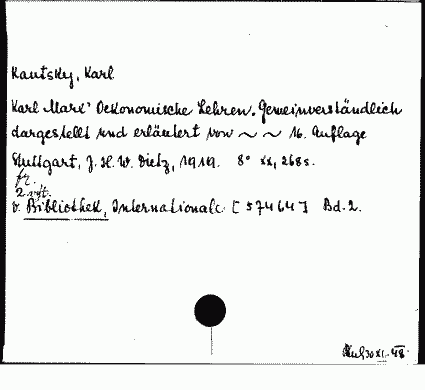 Kautsky, Karl
Karl Marx' Oekonomische Lehren. Gemeinverständlich
dargestellt und erläutert von ~ ~ 16. Auflage
Stuttgart, J. H. W. Dietz, 1919. 8° XX, 268 s.
fr.
v. Bibliothek, Internationale [57464] Bd. 2.
30 XI. 48